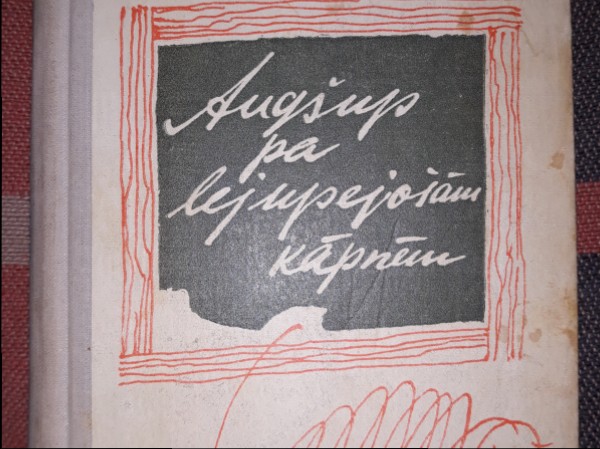 Augšup
pa
lejupejošām
kāpnēm